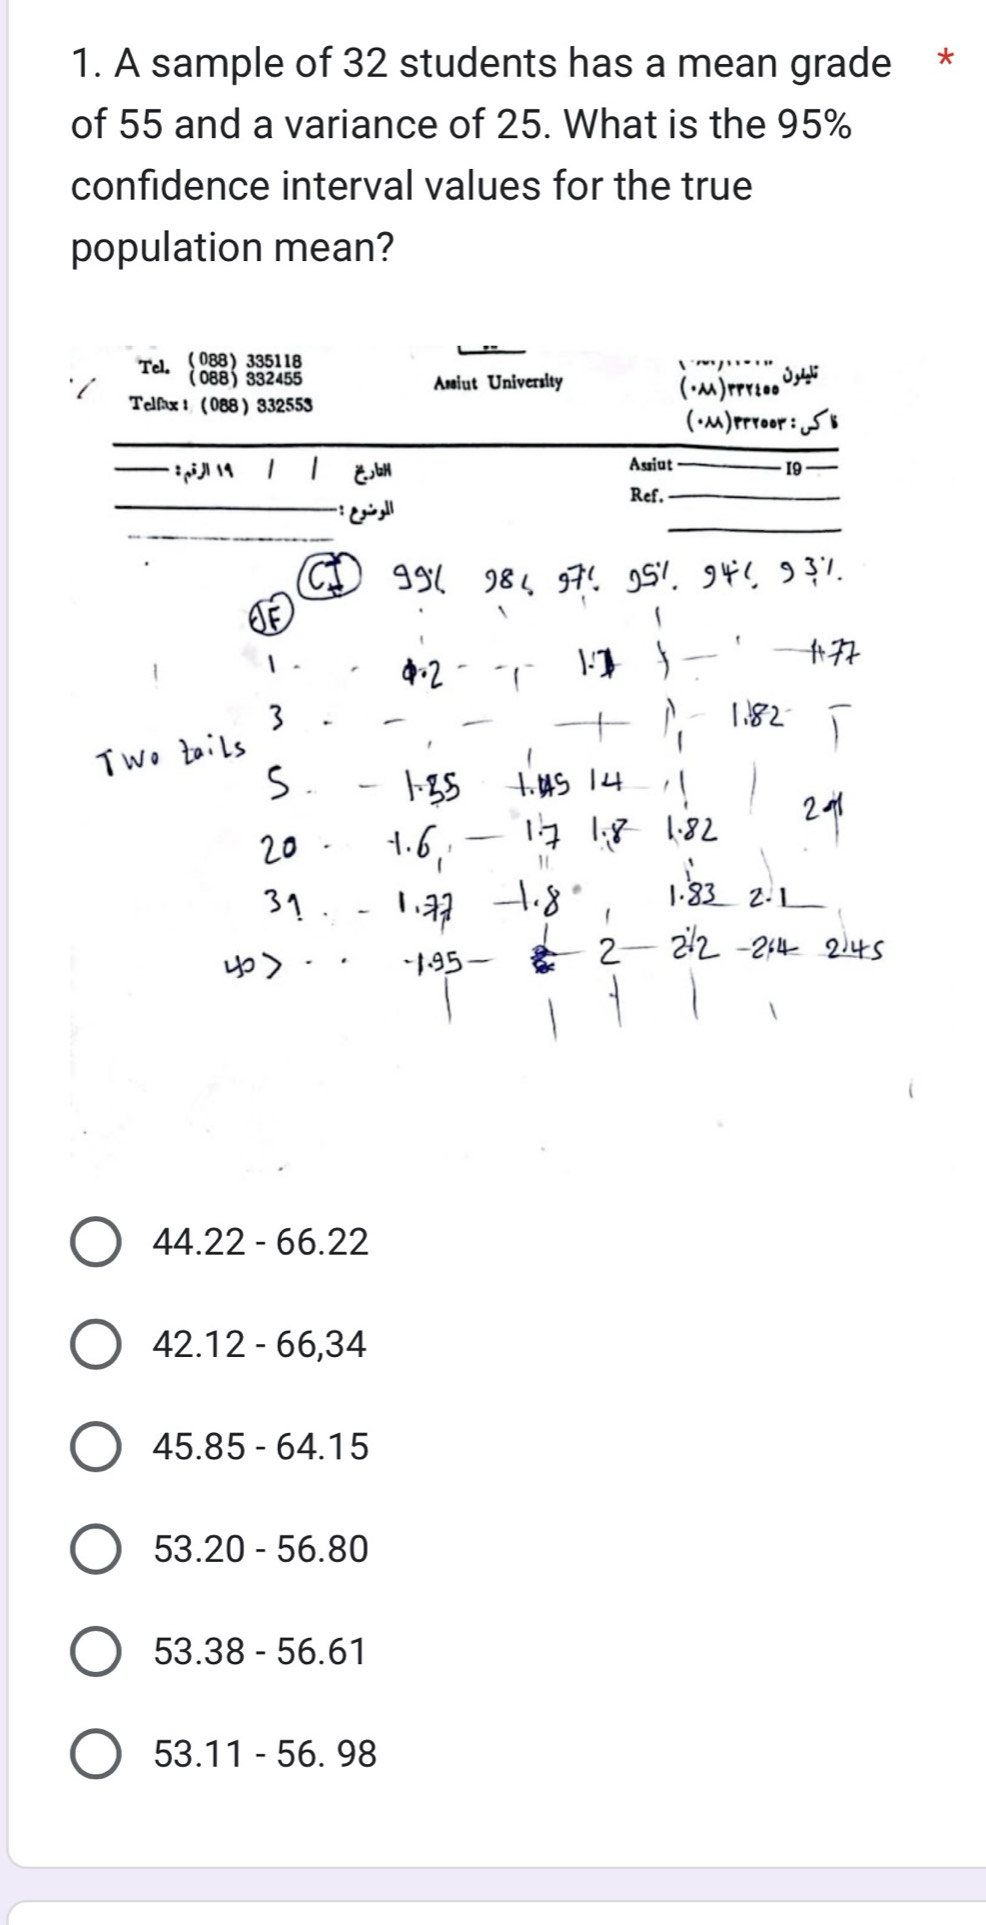 1. A sample of 32 students has a mean grade *
of 55 and a variance of 25. What is the 95%
confidence interval values for the true
population mean?
Tel. (088) 335118
(088) 332455
Telfax: (088) 332553
Assiut University
تليفون
(٠٨٨)٣٣٢٤٥٥
فاكس : ٣٣٢٥٥٣(٠٨٨)
التاريخ / / ١٩ الرقم :
الموضوع :
Assiut 19
Ref.
CI 99% 98% 97% 95% 94% 93%
DF
1
3 1.82
Two tails
5 14
20 1.6 1.7 1.8 1.82
31 1.77 1.8 1.83 2.1
40> 1.95 2 2.2 2.4 2.45
44.22 - 66.22
42.12 - 66,34
45.85 - 64.15
53.20 - 56.80
53.38 - 56.61
53.11 - 56. 98